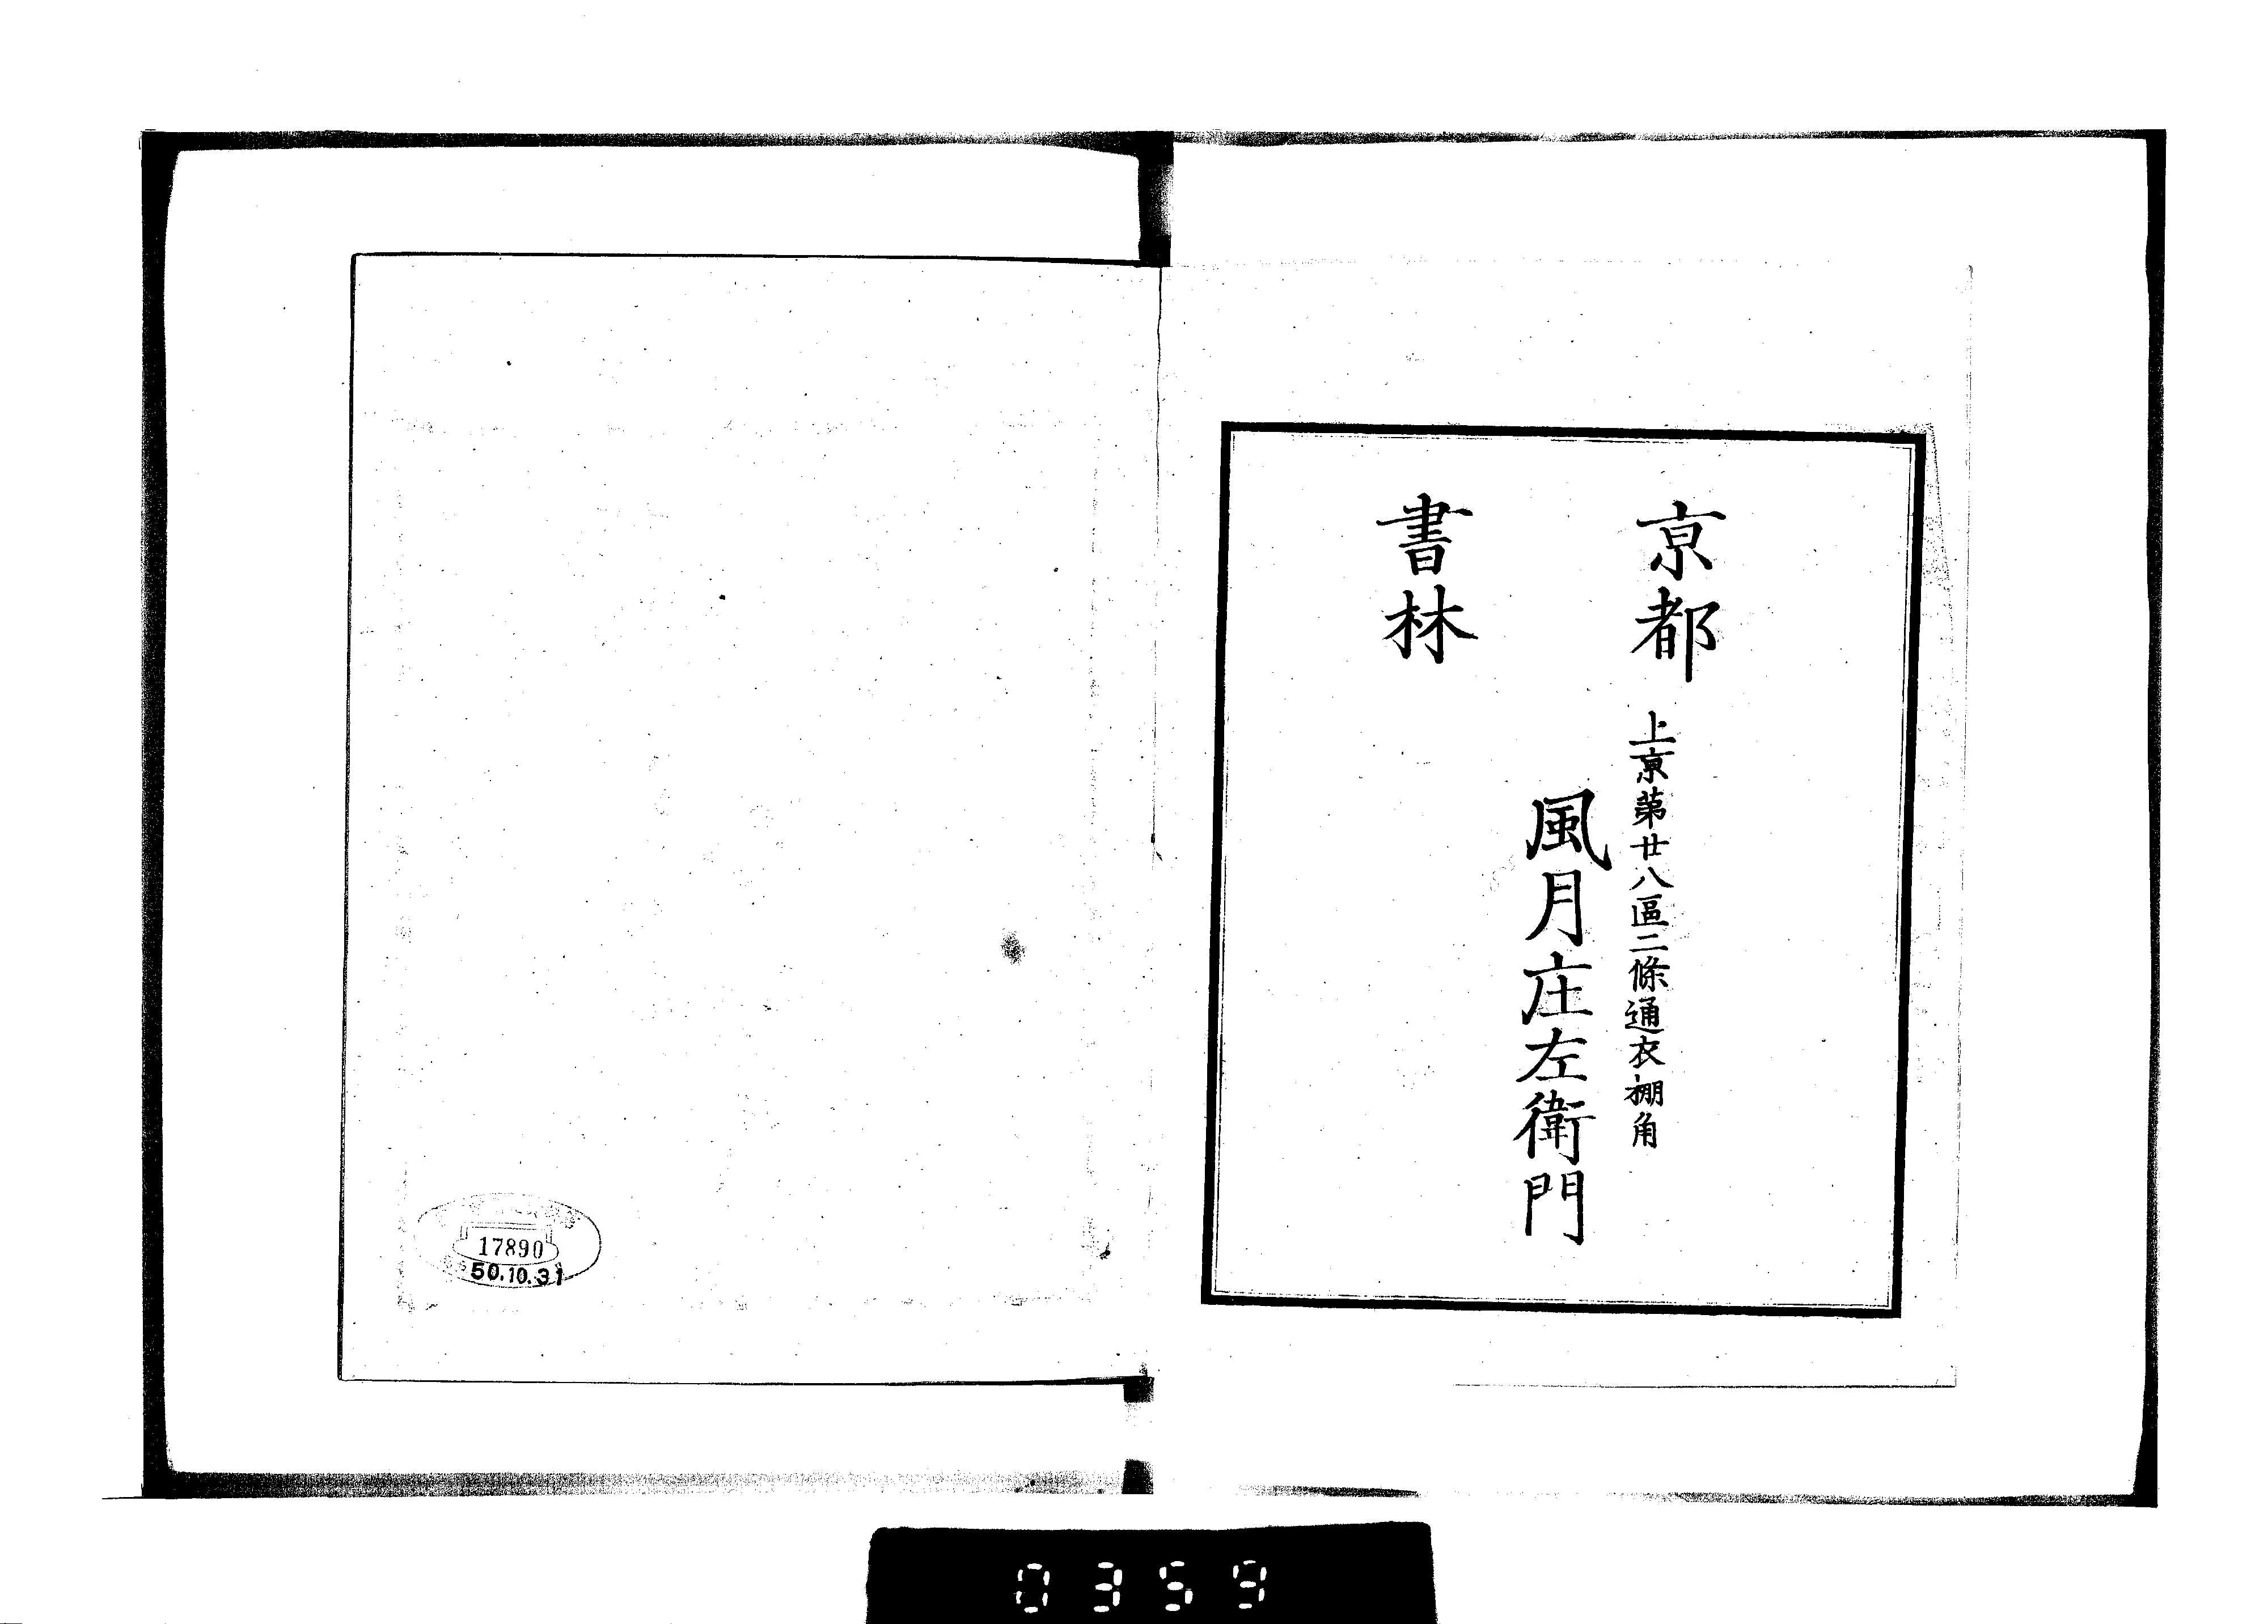 京都
上京第廿八區二條通衣棚角
風月庄左衛門
書林
17890
50.10.31
0359